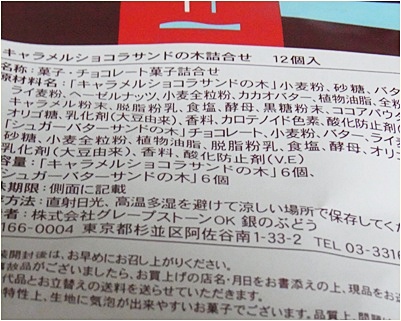 キャラメルショコラサンドの木詰合せ 12個入
名称:菓子・チョコレート菓子詰合せ
原材料名:「キャラメルショコラサンドの木」小麦粉、砂糖、バター
ライ麦粉、ヘーゼルナッツ、小麦全粒粉、カカオバター、植物油脂、全粉
キャラメル粉末、脱脂粉乳、食塩、酵母、黒糖粉末、ココアバター
オリゴ糖、乳化剤(大豆由来)、香料、カロテノイド色素、酸化防止剤(
「シュガーバターサンドの木」チョコレート、小麦粉、バター、ライ麦
砂糖、小麦全粒粉、植物油脂、脱脂粉乳、食塩、酵母、オリゴ
乳化剤(大豆由来)、香料、酸化防止剤(V.E)
容量:「キャラメルショコラサンドの木」6個、
シュガーバターサンドの木」6個
期限:側面に記載
方法:直射日光、高温多湿を避けて涼しい場所で保存してくだ
者:株式会社グレープストーンOK 銀のぶどう
166-0004 東京都杉並区阿佐谷南1-33-2 TEL 03-3316
開封後は、お早めにお召し上がりください。
品がございましたら、お買上げの店名・月日をお書添えの上、現品をお送
代品とお立替えの送料を送らせていただきます。
特性上、生地に気泡が出来やすいお菓子でございます。品質上、問題は